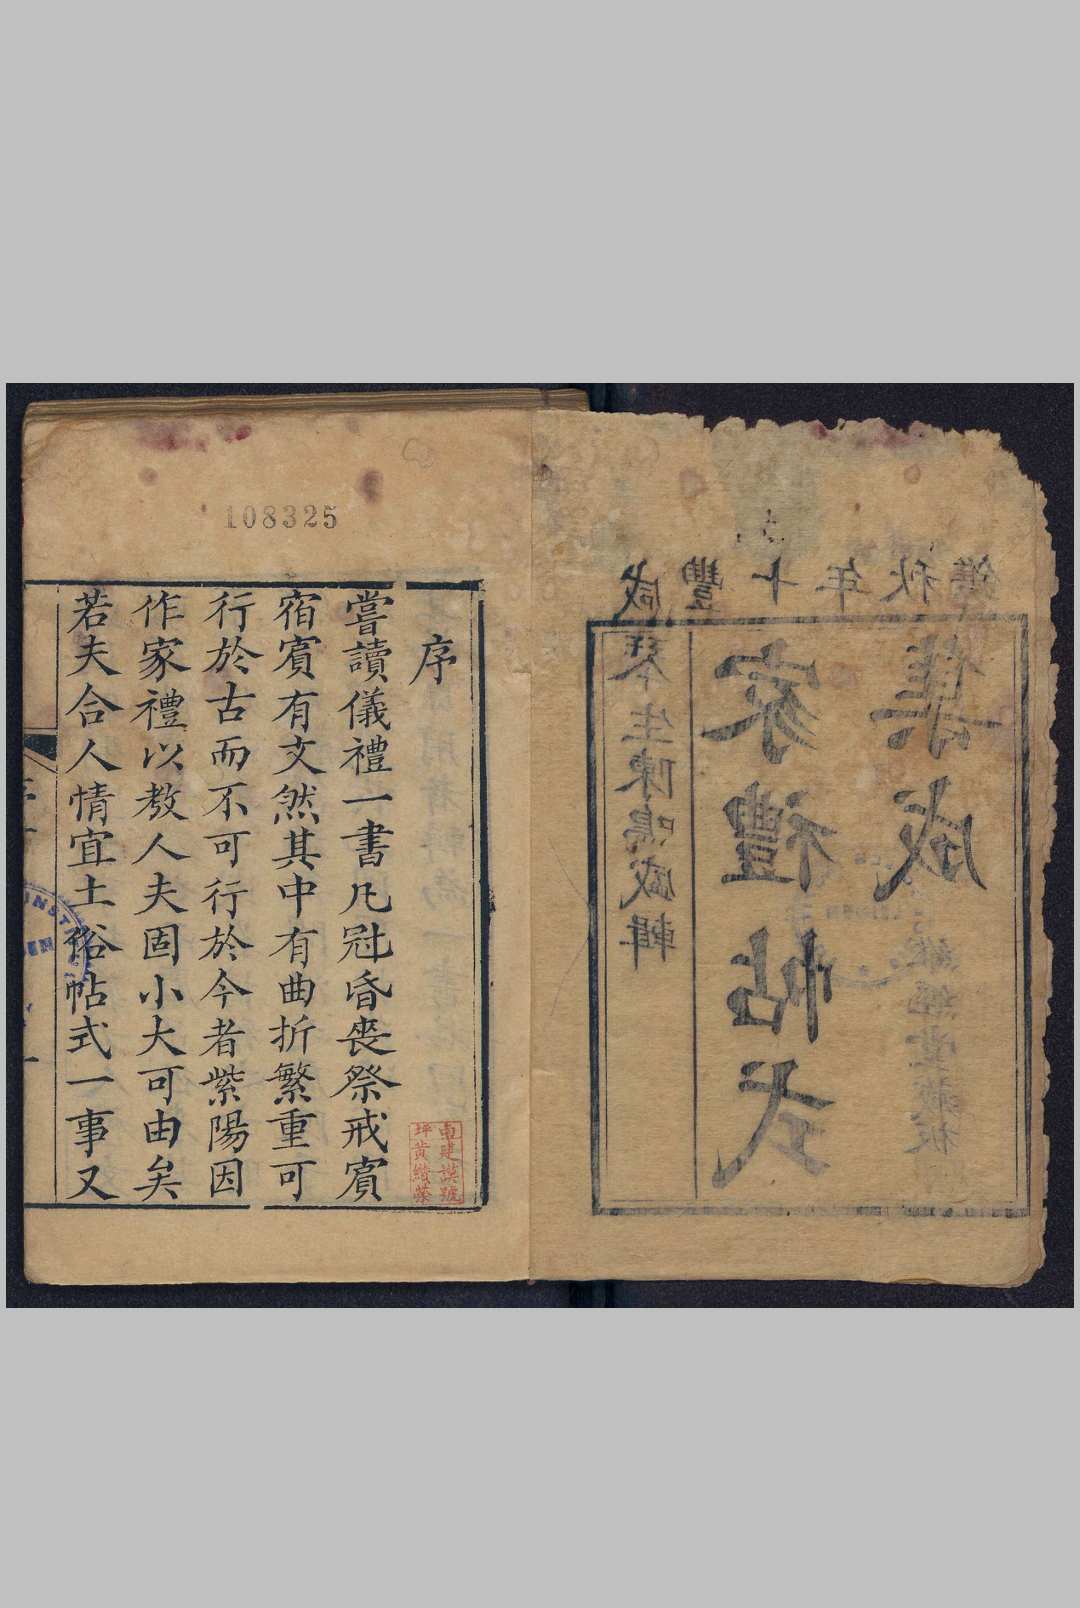 咸豐十年秋鐫
琴生陳鳴盛輯
家禮帖式
集成
108325
序
嘗讀儀禮一書凡冠昏喪祭戒賓
宿賓有文然其中有曲折繁重可
行於古而不可行於今者紫陽因
作家禮以教人夫固小大可由矣
若夫合人情宜土俗帖式一事又